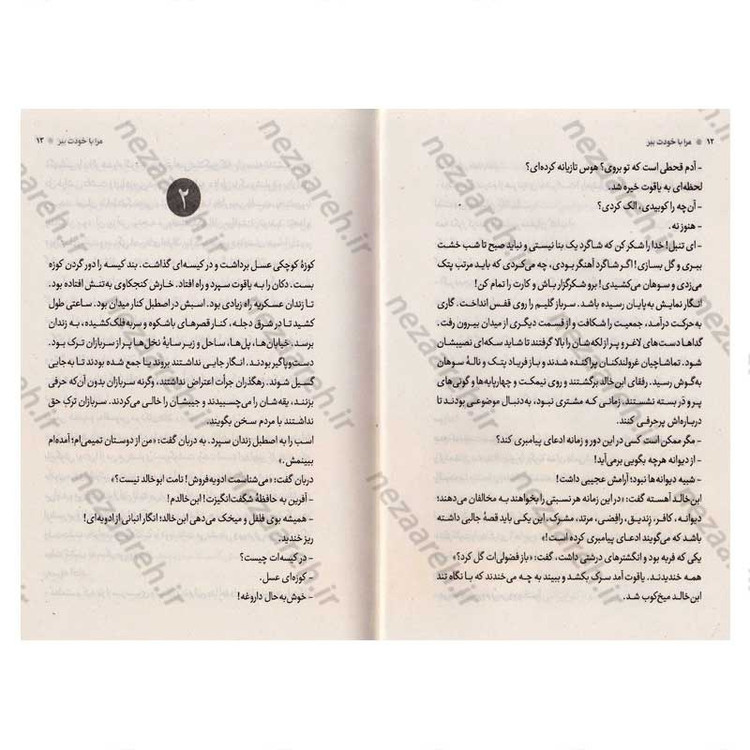 ۱۲ * مرا با خودت ببر
- آدم قحطی است که تو بروی؟ هوس تازیانه کرده‌ای؟
لحظه‌ای به یاقوت خیره شد.
- آن‌چه را کوبیدی، الک کردی؟
- هنوز نه.
- ای تنبل! خدا را شکر کن که شاگرد یک بنا نیستی و نباید صبح تا شب خشت
ببری و گل بسازی! اگر شاگرد آهنگر بودی، چه می‌کردی که باید مرتب پتک
می‌زدی و سوهان می‌کشیدی! برو شکرگزار باش و کارت را تمام کن!
انگار نمایش به پایان رسیده باشد. سرباز گلیم را روی قفس انداخت. گاری
به حرکت درآمد، جمعیت را شکافت و از قسمت دیگری از میدان بیرون رفت.
گداها دست‌های لاغر و پر از لکه‌شان را بالا گرفتند تا شاید سکه‌ای نصیبشان
شود. تماشاچیان غرولندکنان پراکنده شدند و باز فریاد پتک و نالهٔ سوهان
به گوش رسید. رفقای ابن‌خالد برگشتند و روی نیمکت و چهارپایه‌ها و گونی‌های
پر و در بسته نشستند. زمانی که مشتری نبود، به‌دنبال موضوعی بودند تا
درباره‌اش پرحرفی کنند.
- مگر ممکن است کسی در این دور و زمانه ادعای پیامبری کند؟
- از دیوانه هرچه بگویی برمی‌آید!
- شبیه دیوانه‌ها نبود؛ آرامش عجیبی داشت!
ابن‌خالد آهسته گفت: «در این زمانه هر نسبتی را بخواهند به مخالفان می‌دهند؛
دیوانه، کافر، زندیق، رافضی، مرتد، مشرک. این یکی باید قصهٔ جالبی داشته
باشد که می‌گویند ادعای پیامبری کرده است!»
یکی که فربه بود و انگشترهای درشتی داشت، گفت: «باز فضولی‌ات گل کرد؟»
همه خندیدند. یاقوت آمد سرک بکشد و ببیند به چه می‌خندند که با نگاه تند
ابن‌خالد میخ‌کوب شد.
مرا با خودت ببر * ۱۳
۲
کوزهٔ کوچکی عسل برداشت و در کیسه‌ای گذاشت. بند کیسه را دور گردن کوزه
بست. دکان را به یاقوت سپرد و راه افتاد. خارش کنجکاوی به‌تنش افتاده بود.
تا زندان عسکریه راه زیادی بود. اسبش در اصطبل کنار میدان بود. ساعتی طول
کشید تا در شرق دجله، کنار قصرهای باشکوه و سربه‌فلک‌کشیده، به زندان
برسد. خیابان‌ها، پل‌ها، ساحل و زیر سایهٔ نخل‌ها پر از سربازان ترک بود.
دست‌وپاگیر بودند. انگار جایی نداشتند بروند یا جمع شده بودند تا به‌جایی
گسیل شوند. رهگذران جرأت اعتراض نداشتند، وگرنه سربازان بدون آن‌که حرفی
بزنند، یقه‌شان را می‌چسبیدند و جیبشان را خالی می‌کردند. سربازان ترک حق
نداشتند با مردم سخن بگویند.
اسب را به اصطبل زندان سپرد. به دربان گفت: «من از دوستان تمیمی‌ام؛ آمده‌ام
ببینمش.»
دربان گفت: «می‌شناسمت ادویه‌فروش! نامت ابوخالد نیست؟»
- آفرین به حافظهٔ شگفت‌انگیزت! ابن‌خالدم!
- همیشه بوی فلفل و میخک می‌دهی ابن‌خالد؛ انگار انبانی از ادویه‌ای!
ریز خندید.
- در کیسه‌ات چیست؟
- کوزه‌ای عسل.
- خوش به حال داروغه!
nezaareh.ir